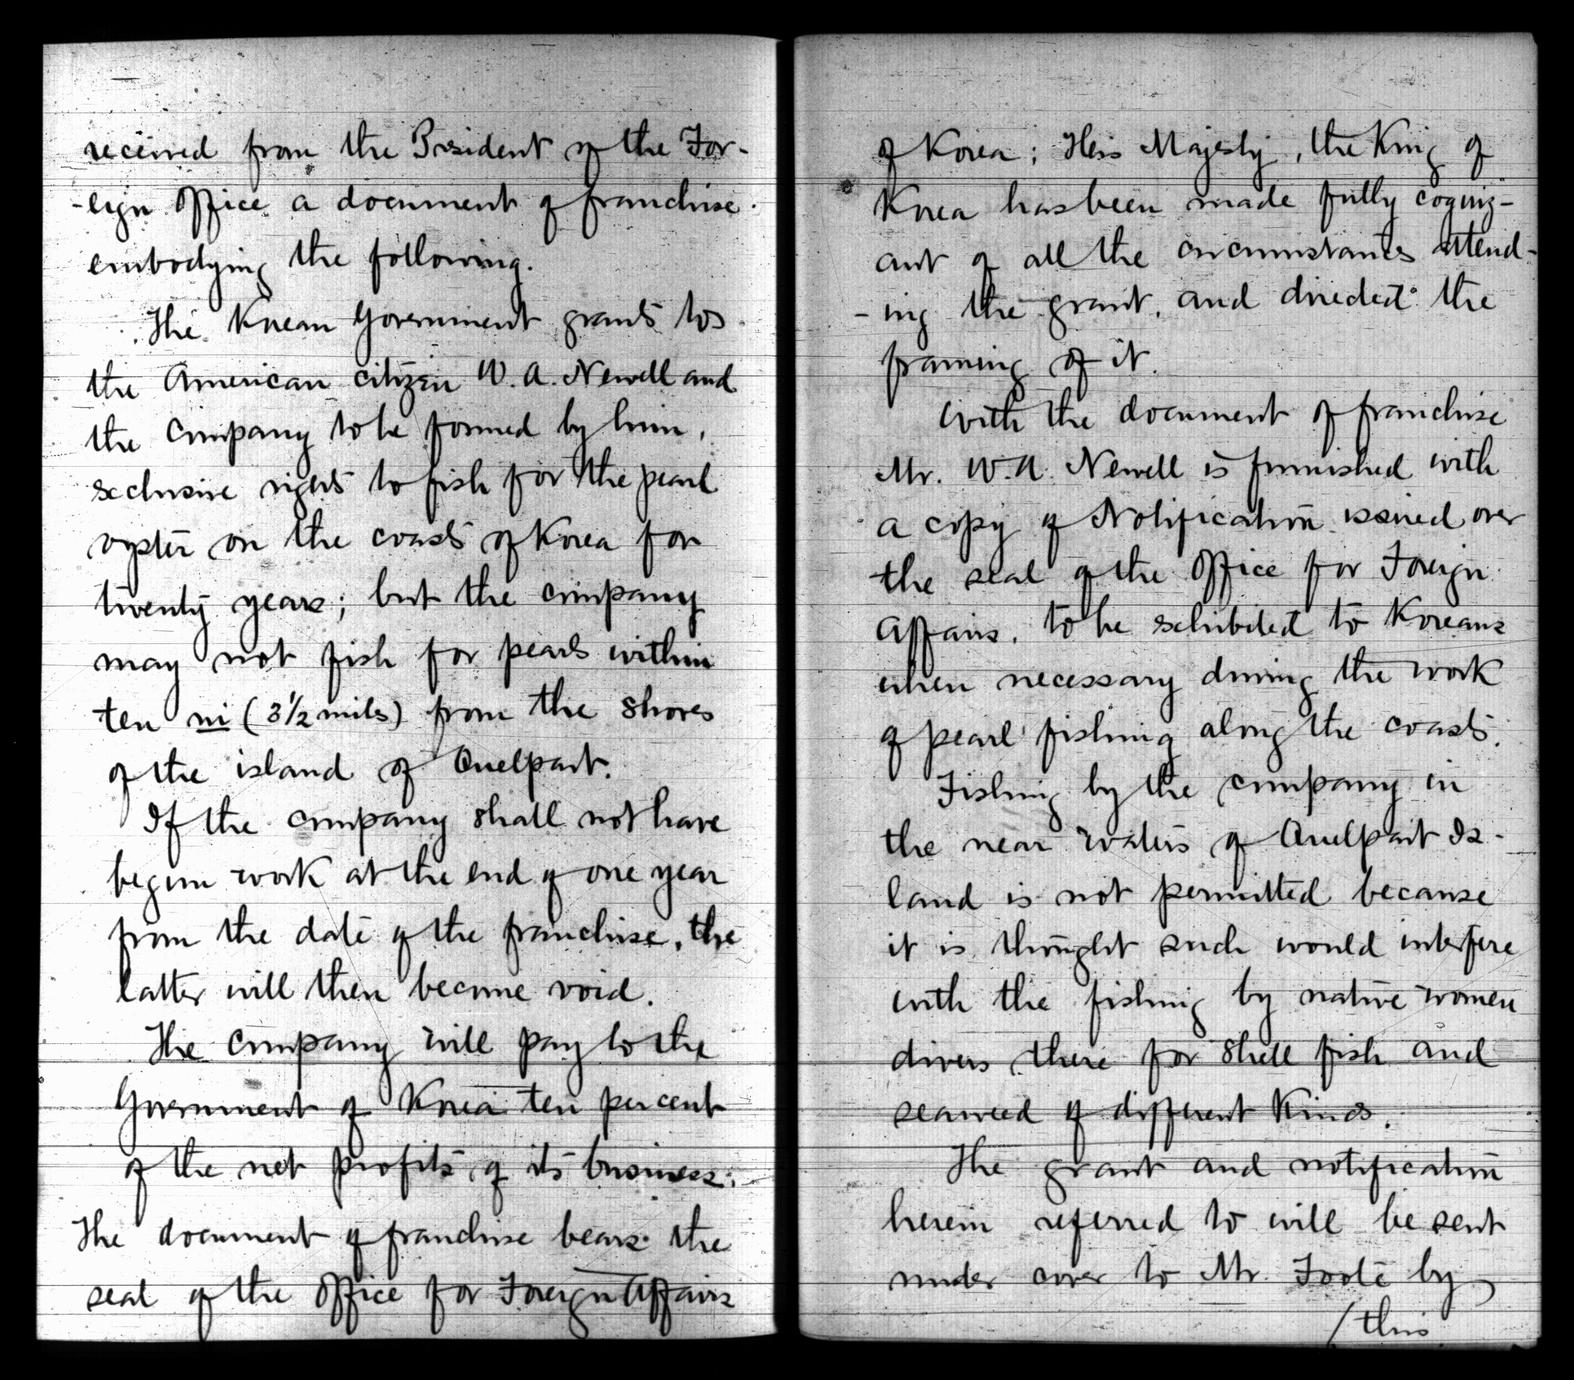 received from the President of the For-
-eign Office a document of franchise
embodying the following.
The Korean Government grants to
the American citizen W. A. Newell and
the Company to be formed by him,
exclusive rights to fish for the pearl
oyster on the coasts of Korea for
twenty years; but the company
may not fish for pearls within
ten ni (3 1/2 miles) from the shores
of the island of Quelpart.
If the company shall not have
begun work at the end of one year
from the date of the franchise, the
latter will then become void.
The Company will pay to the
Government of Korea ten percent
of the net profits of its business.
The document of franchise bears the
seal of the Office for Foreign Affairs
of Korea; His Majesty, the King of
Korea has been made fully cogniz-
ant of all the circumstances attend-
-ing the grant, and directed the
framing of it.
With the document of franchise
Mr. W. A. Newell is furnished with
a copy of Notification issued over
the seal of the Office for Foreign
Affairs, to be exhibited to Koreans
when necessary during the work
of pearl fishing along the coasts.
Fishing by the company in
the near waters of Quelpart Is-
land is not permitted because
it is thought such would interfere
with the fishing by native women
divers there for shell fish and
seaweed of different kinds.
The grant and notification
herein referred to will be sent
under cover to Mr. Foote by
/this